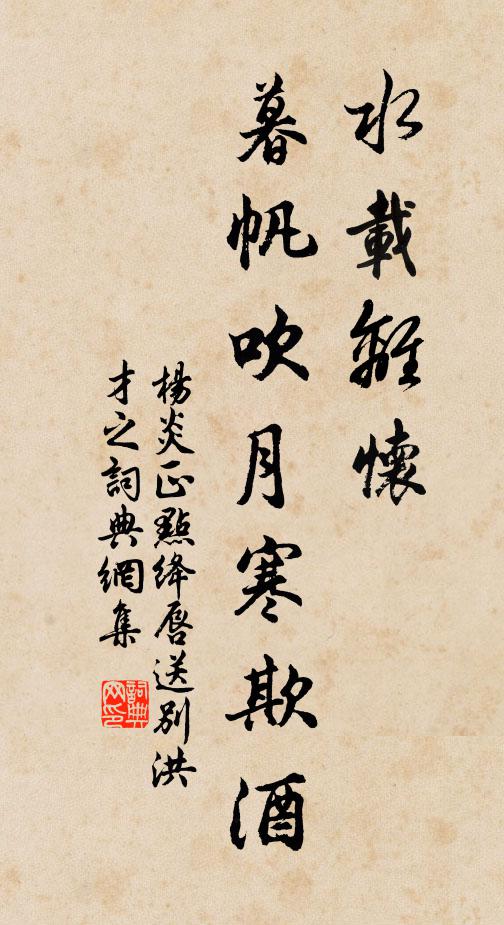 水載離懷
暮帆吹月寒欺酒
楊炎正點絳唇送別洪
才之詞典網集
詞典網印